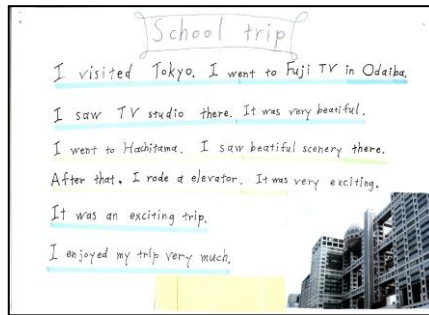 School trip
I visited Tokyo. I went to Fuji TV in Odaiba.
I saw TV studio there. It was very beatiful.
I went to Hachitama. I saw beatiful scenery there.
After that. I rode a elevator. It was very exciting.
It was an exciting trip.
I enjoyed my trip very much.